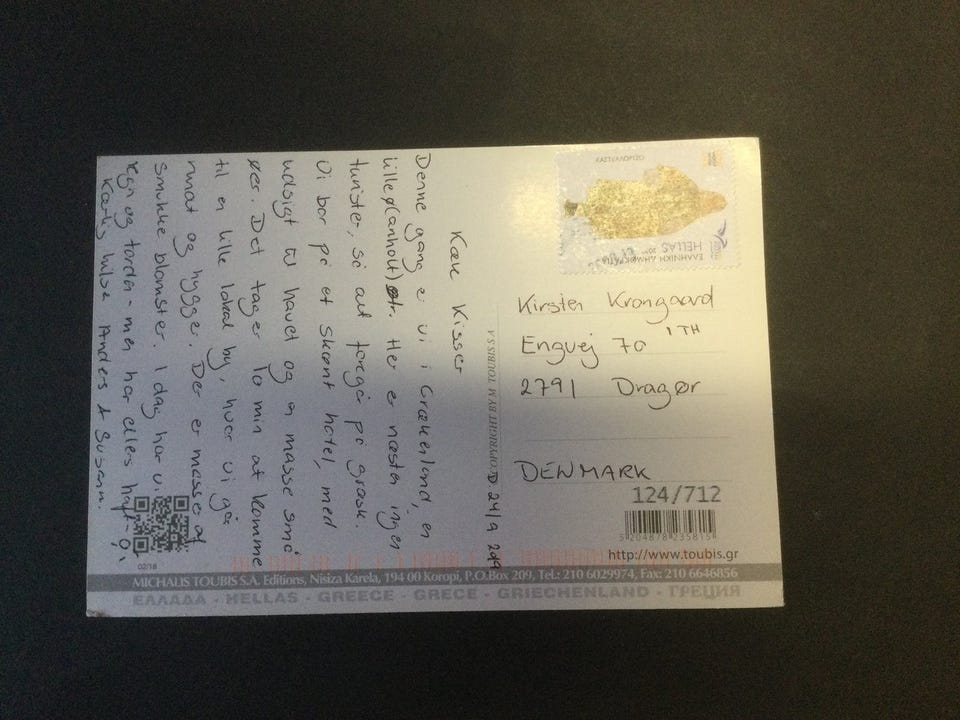 D. 24/9 2019
Kære Kisser
Denne gang er vi i Grækenland, en
lille ø (anholt) str. Her er næsten ingen
turister, så alt foregår på græsk.
Vi bor på et skønt hotel, med
udsigt til havet og en masse små
øer. Det tager 10 min at komme
til en lille lokal by, hvor vi går
rundt og hygger. Der er masser af
smukke blomster. I dag har vi
regn og torden - men har ellers haft
Kærlig hilsen Anders & Susann.
ΕΛΛΗΝΙΚΗ ΔΗΜΟΚΡΑΤΙΑ
HELLAS
Kirsten Krongaard
Engvej 70 1 TH
2791 Dragør
DENMARK
COPYRIGHT BY M. TOUBIS S.A.
124/712
5 204878 235815
http://www.toubis.gr
02/18
MICHALIS TOUBIS S.A. Editions, Nisiza Karela, 194 00 Koropi, P.O.Box 209, Tel.: 210 6029974, Fax: 210 6646856
ΕΛΛΑΔΑ - HELLAS - GREECE - GRECE - GRIECHENLAND - ГРЕЦИЯ